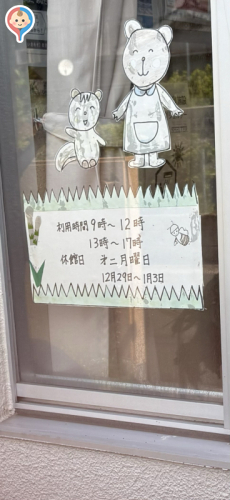 利用時間 9時～12時
13時～17時
休館日 才二月曜日
12月29日～1月3日